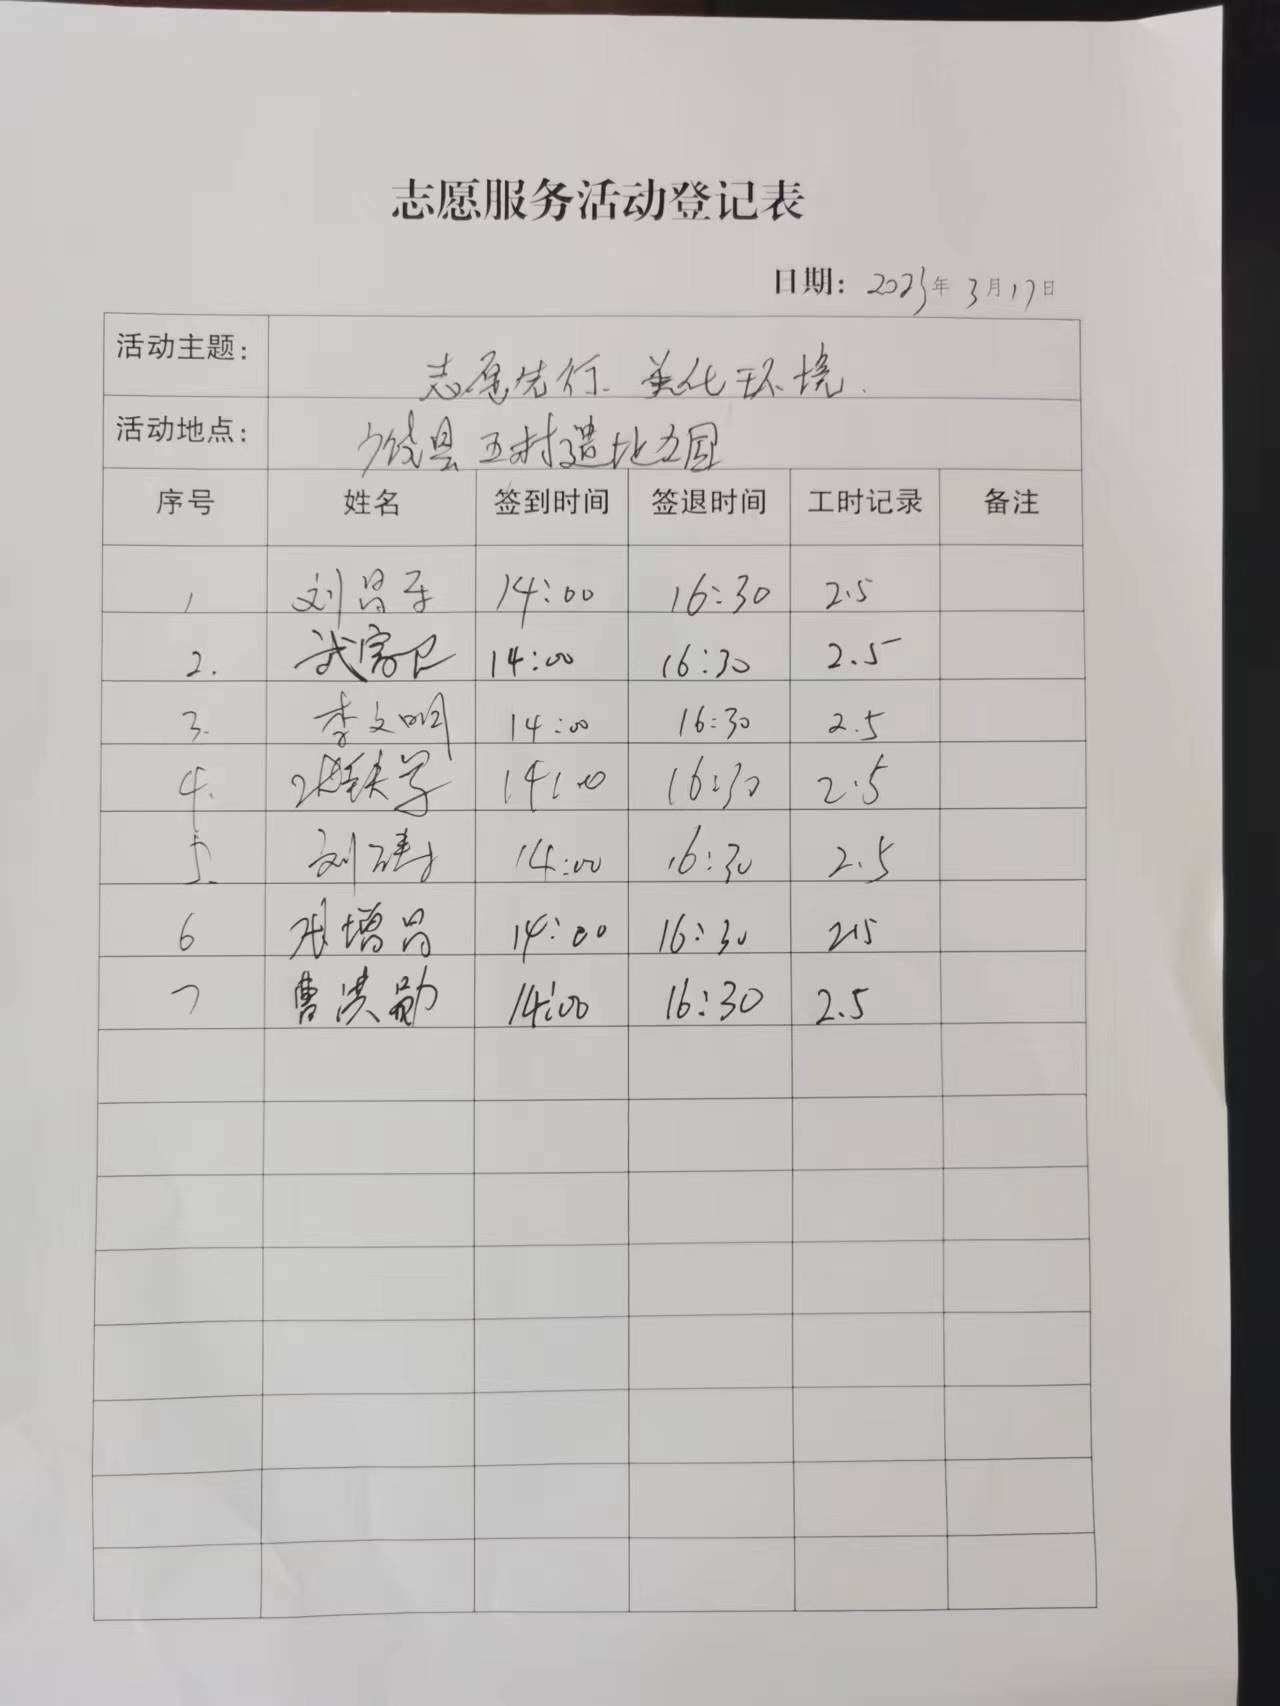 志愿服务活动登记表
日期: 2023年 3月17日
活动主题: 志愿先行 美化环境.
活动地点: 县 五村遗址
序号 姓名 签到时间 签退时间 工时记录 备注
1 刘昌 14:00 16:30 2.5
2. 武家 14:00 16:30 2.5
3. 李文明 14:00 16:30 2.5
4. 14:00 16:30 2.5
5. 刘 14:00 16:30 2.5
6 张增昌 14:00 16:30 2.5
7 曹洪勋 14:00 16:30 2.5